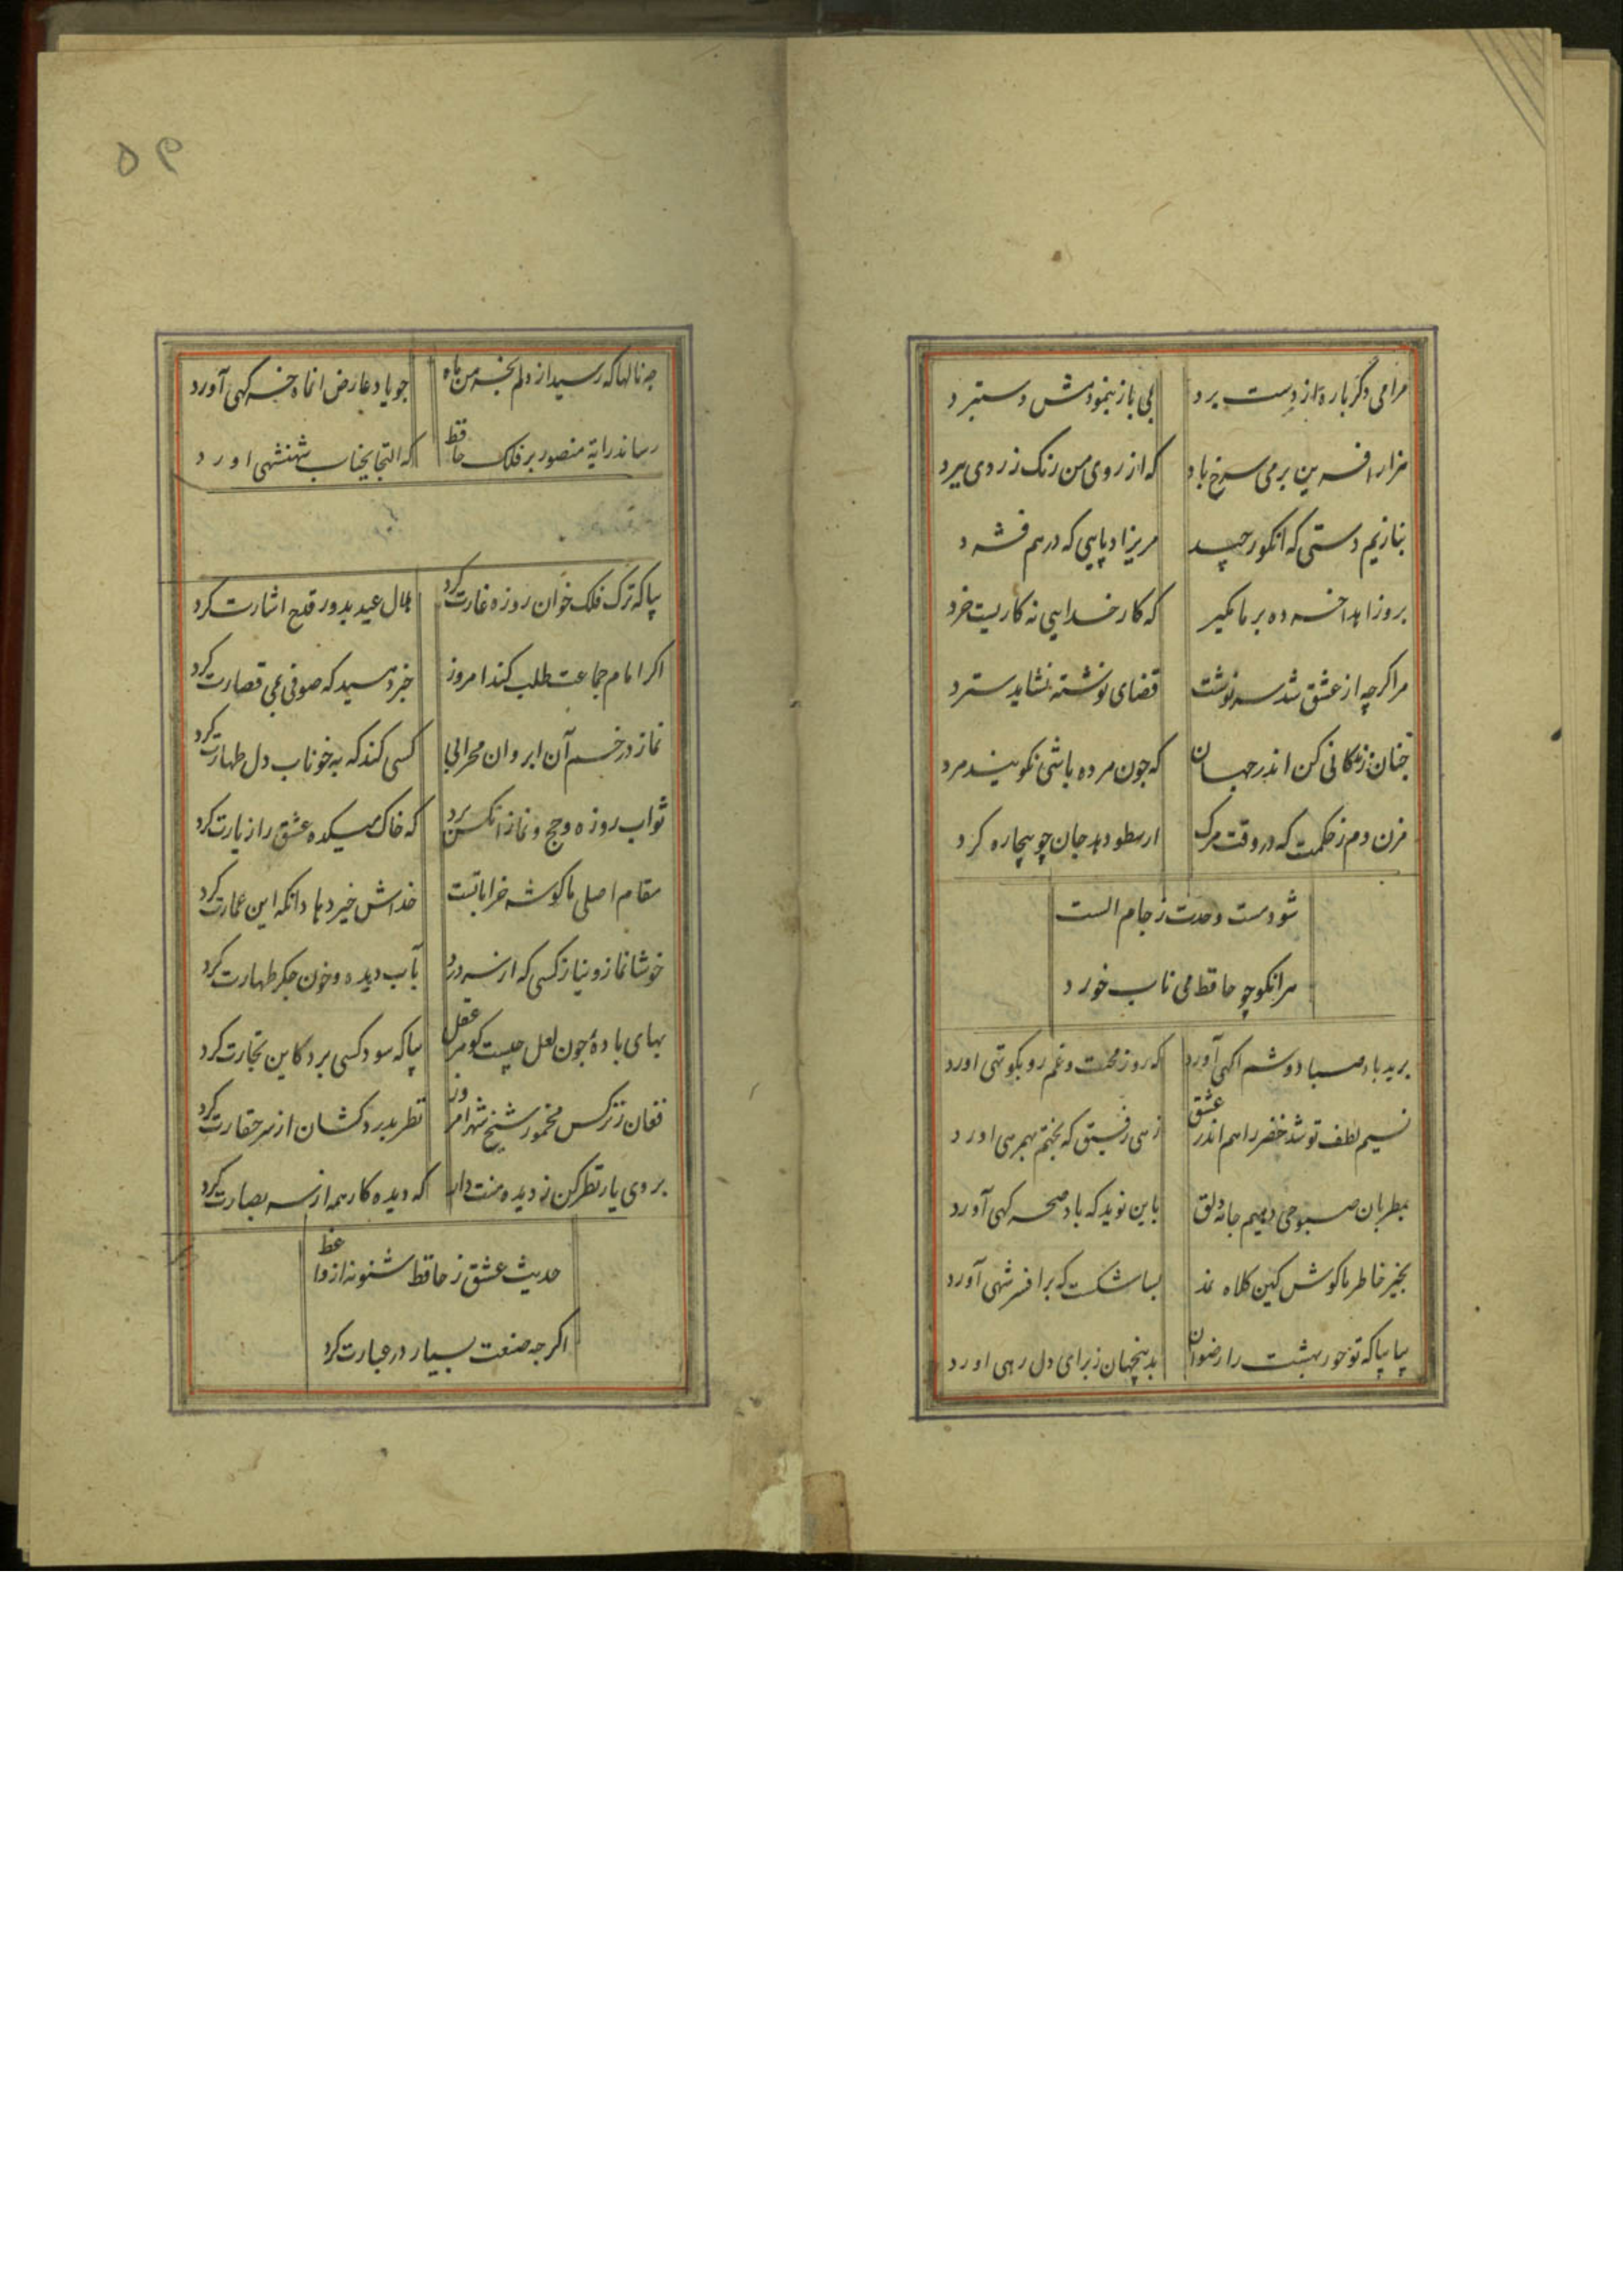 مرا می دگر باره از دست برد
بمی باز بنمودمش دستبرد
هزار افرین بر می سرخ باد
که از روی من رنک زردی ببرد
بنازیم دستی که انکور چید
مریزاد پایی که درهم فشرد
برو زاهدا خرده بر ما مکیر
که کار خدایی نه کاریست خرد
مرا کرچه از عشق شد سرنوشت
قضای نوشته نشاید سترد
چنان زندکانی کن اندر جهان
که جون مرده باشی نکویند مرد
مزن دم ز حکمت که در وقت مرک
ارسطو دهد جان چو بیچاره کرد
شود مست وحدت ز جام الست
هر انکو چو حافظ می ناب خورد
برید باد صبا دوشم اکهی آورد
که روز محنت و غم رو بکوتهی اورد
نسیم لطف تو شد خضر راهم اندر عشق
زهی رفیق که بختم بهمرهی اورد
بمطربان صبوحی دهیم جامه دلق
باین نوید که باد صحرکهی آورد
بخیر خاطر ما کوش کین کلاه نمد
بسا شکست که بر افسر شهی آورد
بیا بیا که تو حور بهشت را رضوان
بدینجهان ز برای دل رهی اورد
۵۹
چه نالها که رسید از دلم بخرمن ماه
جو یاد عارض انماه خرکهی آورد
رساند رایة منصور بر فلک حافظ
که التجا بجناب شهنشهی اورد
بیا که ترک فلک خوان روزه غارت کرد
هلال عید بدور قدح اشارت کرد
اکر امام جماعت طلب کند امروز
خبر دهید که صوفی بمی قصارت کرد
نماز در خم آن ابروان محرابی
کسی کند که به خوناب دل طهارت کرد
ثواب روزه و حج و نماز انکس برد
که خاک میکده عشق را زیارت کرد
مقام اصلی ما کوشه خراباتست
خداش خیر دهاد انکه این عمارت کرد
خوشا نماز و نیاز کسی که از سر درد
بآب دیده و خون جکر طهارت کرد
بهای بادهٔ جون لعل چیست کوهر عقل
بیا که سود کسی برد کاین تجارت کرد
فغان ز نرکس مخمور شیخ شهر امروز
نظر بدردکشان از سر حقارت کرد
بروی یار نظر کن ز دیده منت دار
که دیده کار همه از سر بصارت کرد
حدیث عشق ز حافظ شنو نه از واعظ
اکرجه صنعت بسیار در عبارت کرد